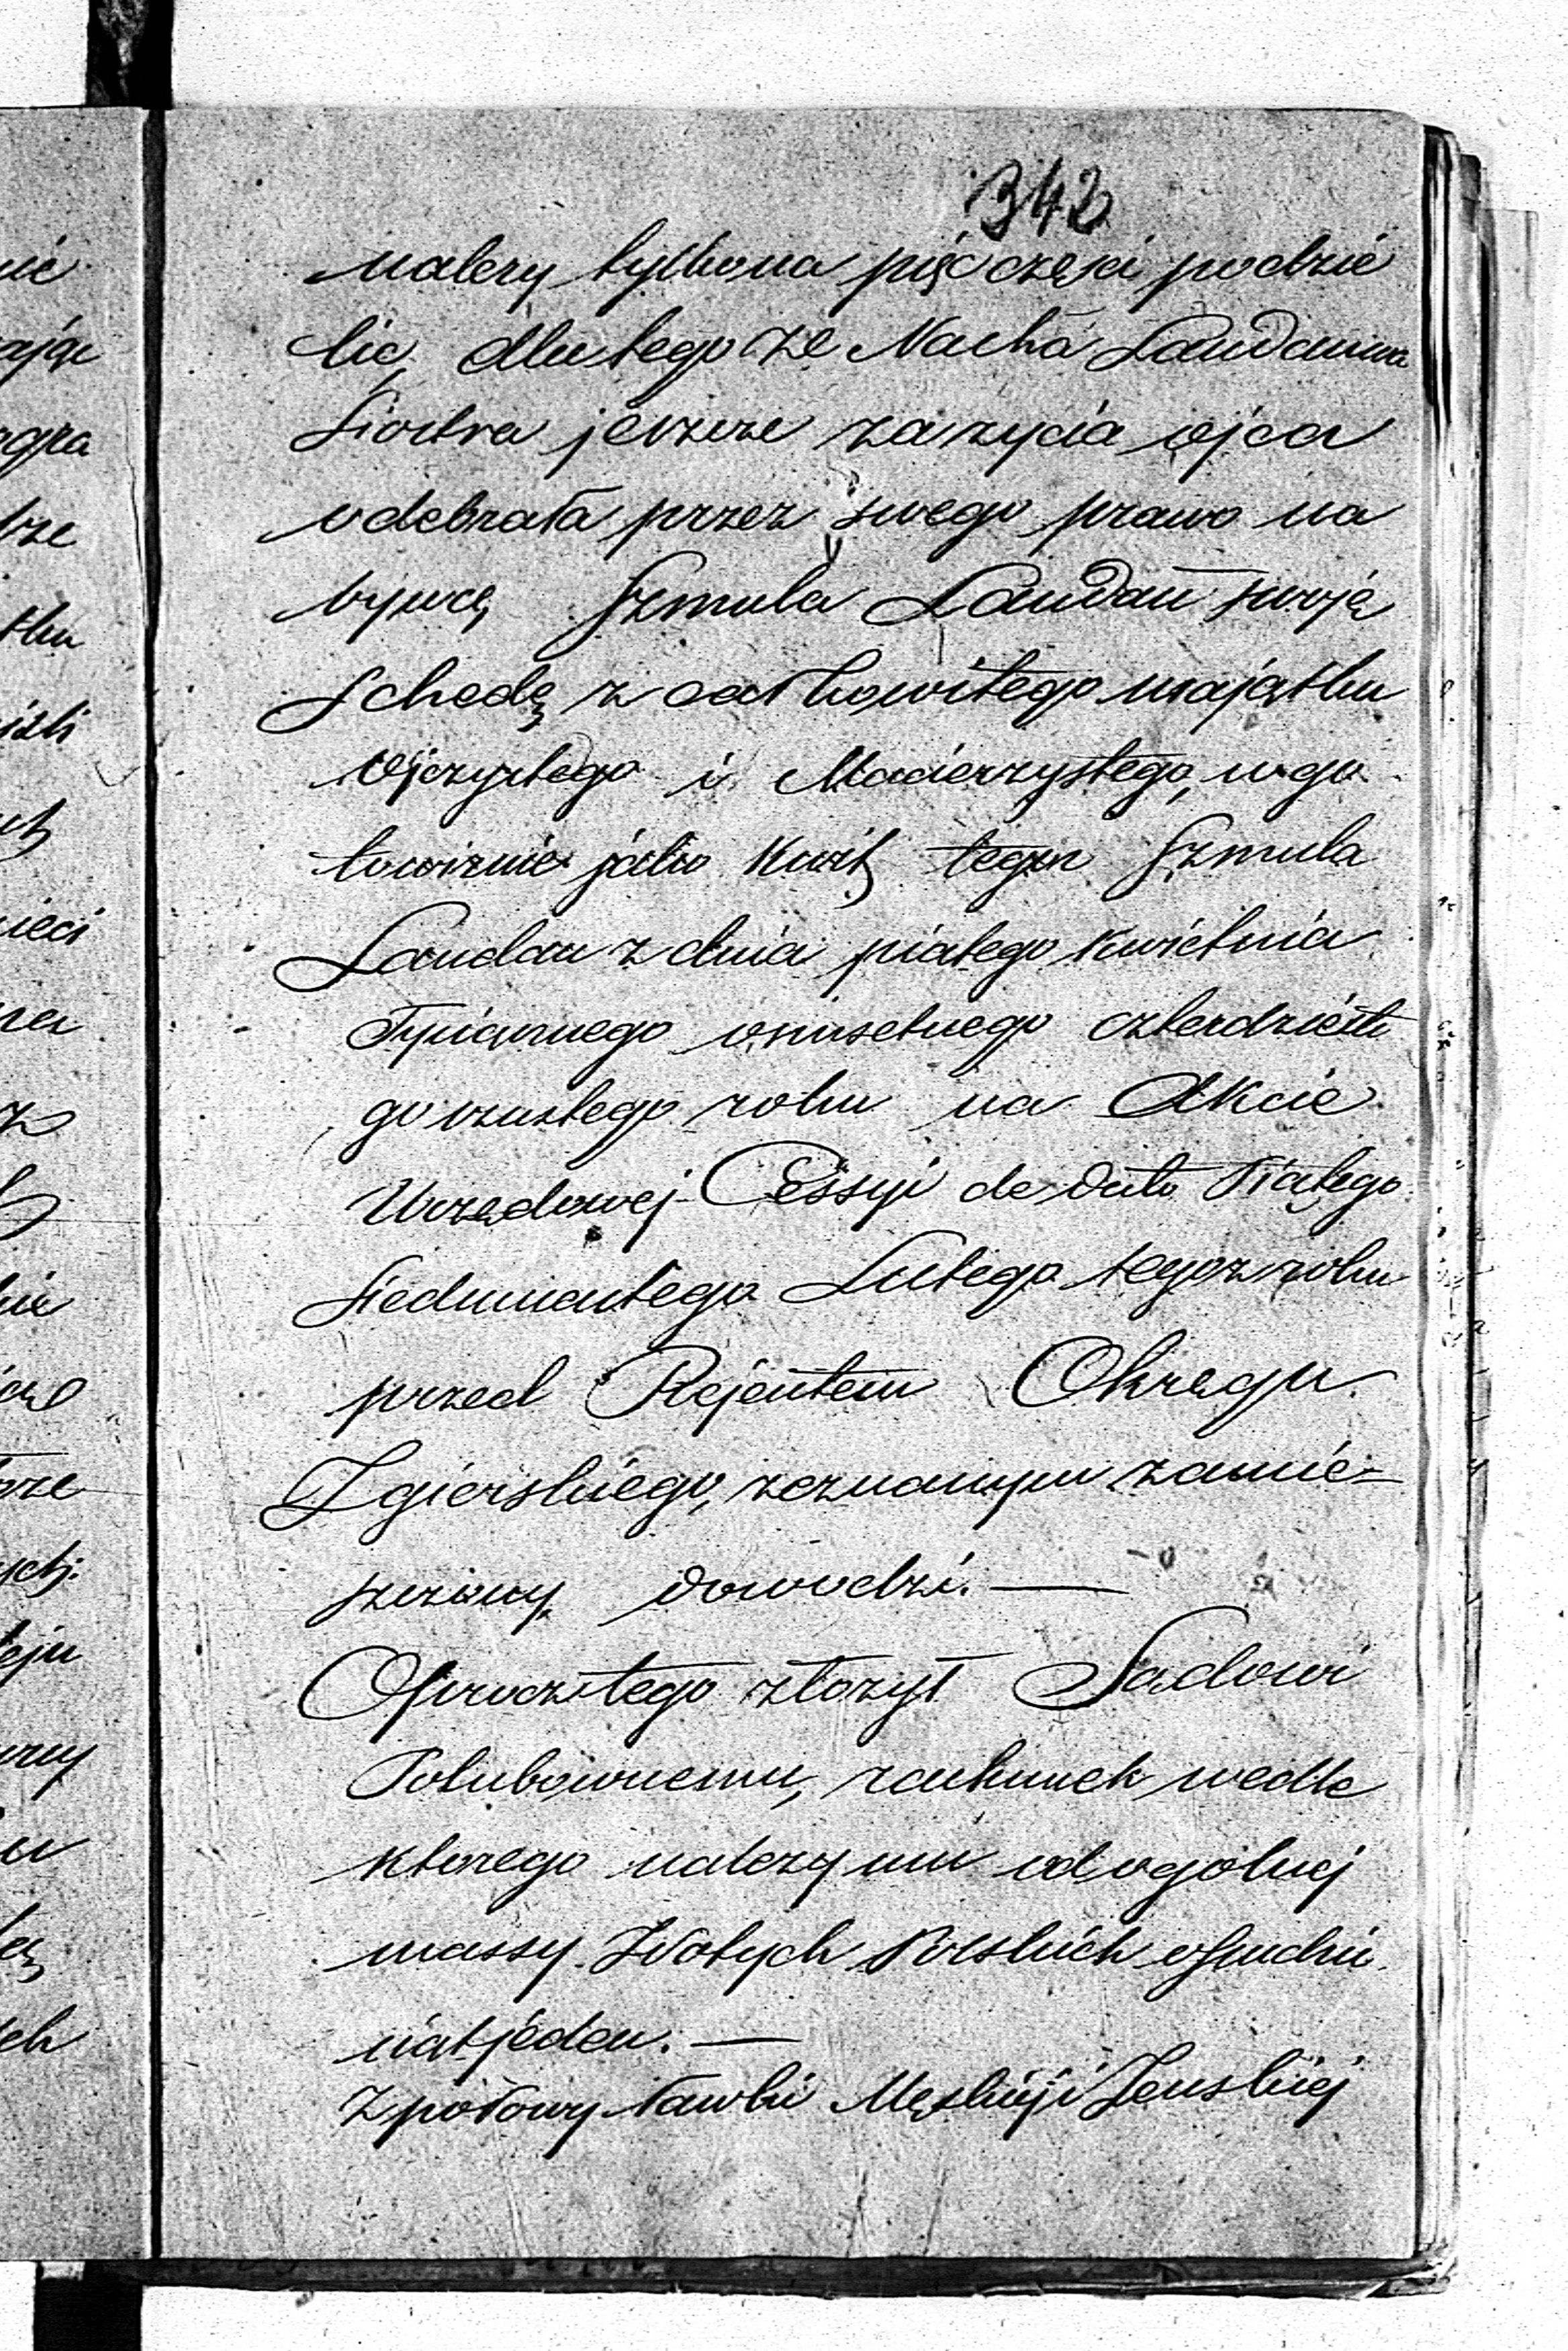 342
należy tylko na pięć części podzie
lić, dla tego że Nacha Landauowa
Siostra jeszcze za życia ojca
odebrała przez swego prawo na
bywcę Szmula Landau swoją
Schedę z całkowitego majątku
Ojczystego i Macierzystego, w go
towiźnie jako Kwit tegoż Szmula
Landau z dnia piątego Kwietnia
Tysiącznego ośmsetnego czterdzieste
go szustego roku na Akcie
Urzędowej Cessyi de dato Piątego
Siedmnastego Lutego tegoż roku
przed Rejentem Okręgu
Zgierskiego, zeznanym zamie-
szczony dowodzi. —
Oprócz tego złożył Sądowi
Polubownemu, rachunek wedle
którego należy mu od ogólnej
massy Złotych Polskich
jeden. —
Z połowy ławki Męskiej i Żeńskiej